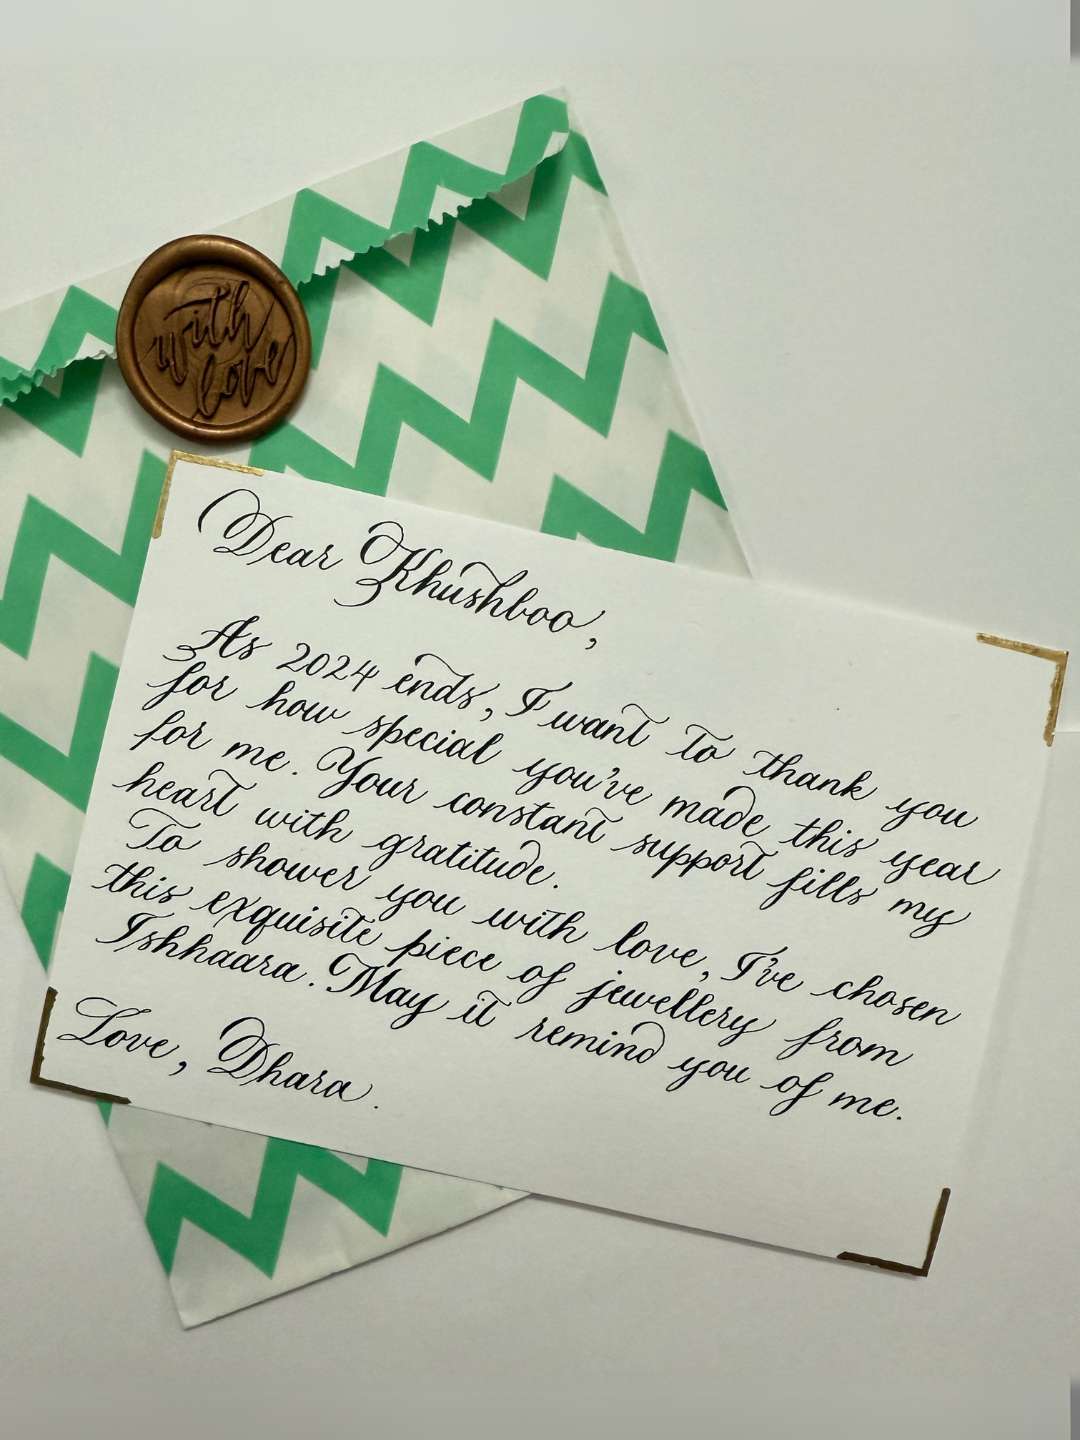 with
love
Dear Khushboo,
As 2024 ends, I want to thank you
for how special you've made this year
for me. Your constant support fills my
heart with gratitude.
To shower you with love, I've chosen
this exquisite piece of jewellery from
Ishhaara. May it remind you of me.
Love, Dhara.